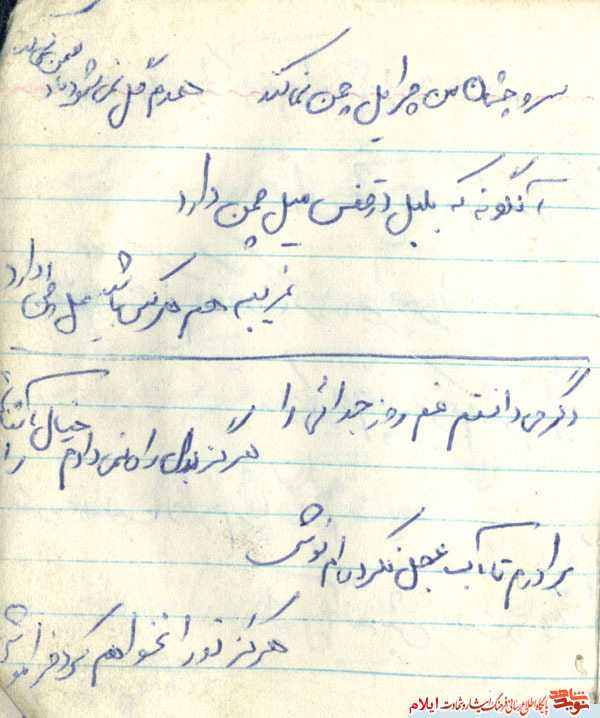 سرو چمان من چرا میل چمن نمی کند همدم گل نمی شود یاد سمن نمی کند
آنگونه که بلبل در قفس میل چمن دارد
غریبم هم هر کس باشد میل وطن دارد
دگر می دانستم غم روز جدائی را
هرگز بدل راه نمی دادم خیال
را
برادرم تا آب عجل نکرده ام نوش
هرگز تو را نخواهم کرد فراموش
نوید شاهد پایگاه اطلاع رسانی فرهنگ ایثار و شهادت ایلام